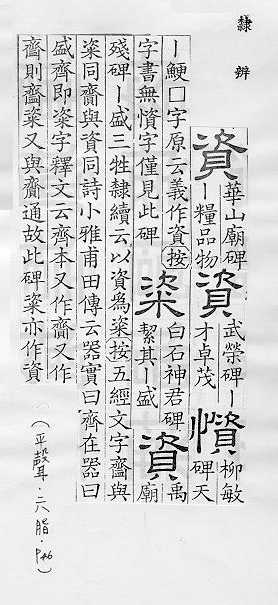 隸辨
資 華山廟碑丨糧品物 資 武榮碑丨才卓茂 柳敏碑天
丨鯁□字原云義作資按
字書無字僅見此碑 粢 白石神君碑絜其丨盛 資 禹廟
殘碑丨盛三牲隸續云以資為粢按五經文字齍與
粢同齎與資同詩小雅甫田傳云器實曰齊在器曰
盛齊即粢字釋文云齊本又作齎又作
齍則齍粢又與齎通故此碑粢亦作資
(平聲·六脂·P46)